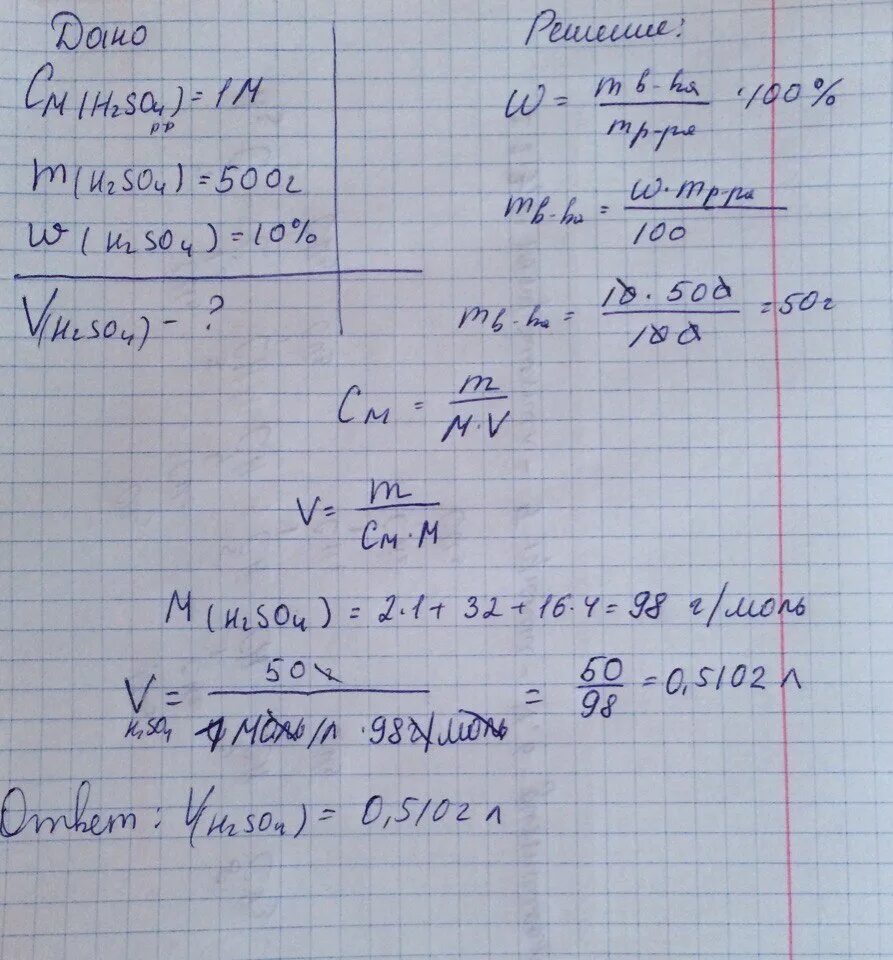 Дано
Cм(H₂SO₄) = 1М
р-р
m(H₂SO₄) = 500г
ω(H₂SO₄) = 10%
V(H₂SO₄) - ?
Решение:
ω = m в-ва / m р-ра · 100%
m в-ва = ω · m р-ра / 100
m в-ва = 10 · 500 / 100 = 50г
Cм = m / M·V
V = m / Cм·M
M(H₂SO₄) = 2·1 + 32 + 16·4 = 98 г/моль
V H₂SO₄ = 50г / 1 моль/л · 98г/моль = 50 / 98 = 0,5102 л
Ответ: V(H₂SO₄) = 0,5102 л